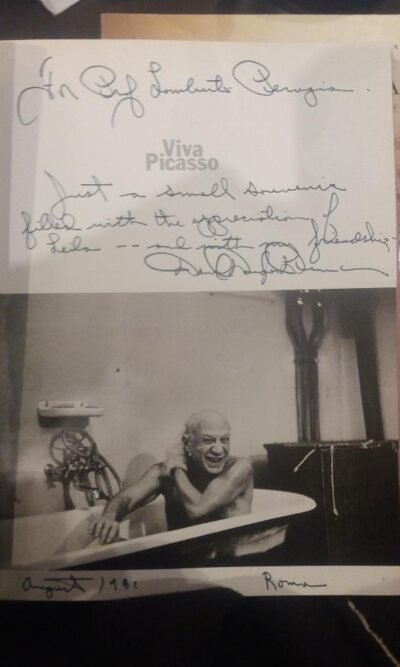 For Prof Lamberto Perugia.
Viva
Picasso
Just a small souvenir
filled with the appreciation of
Leila -- and with my friendship.
David Douglas Duncan
August 1981 Roma